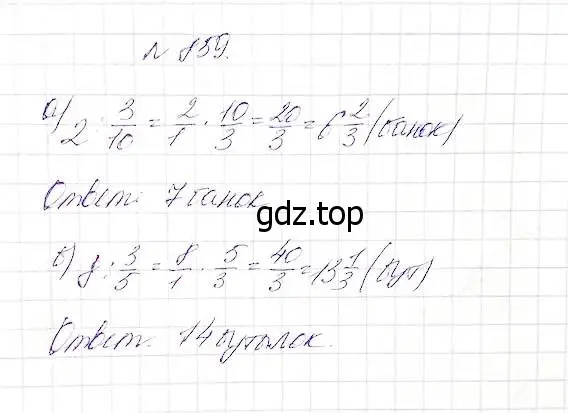 № 859.
а) 2 : 3/10 = 2/1 · 10/3 = 20/3 = 6 2/3 (банок)
Ответ: 7 банок
gdz.top
б) 8 : 3/5 = 8/1 · 5/3 = 40/3 = 13 1/3 (бут)
Ответ: 14 бутылок.